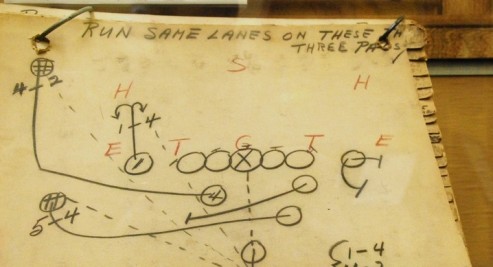 RUN SAME LANES ON THESE
THREE PA
S
4-2
H
H
1-4
E
T
G
T
E
X
4
5-4
1-4